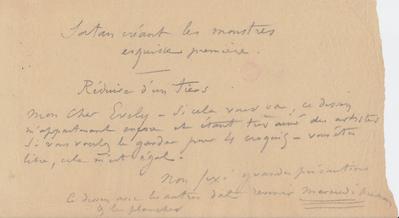 Satan créant les monstres
esquisse première.
Réduire d'un Tiers
Mon cher Evely – si cela vous va, ce dessin
m'appartenant encore et étant très aimé des artistes
si vous voulez le garder pour 4 croquis – vous êtes
libre, cela m'est égal.
Non fixé grandes précautions
Ce dessin avec les autres doit revenir mercredi